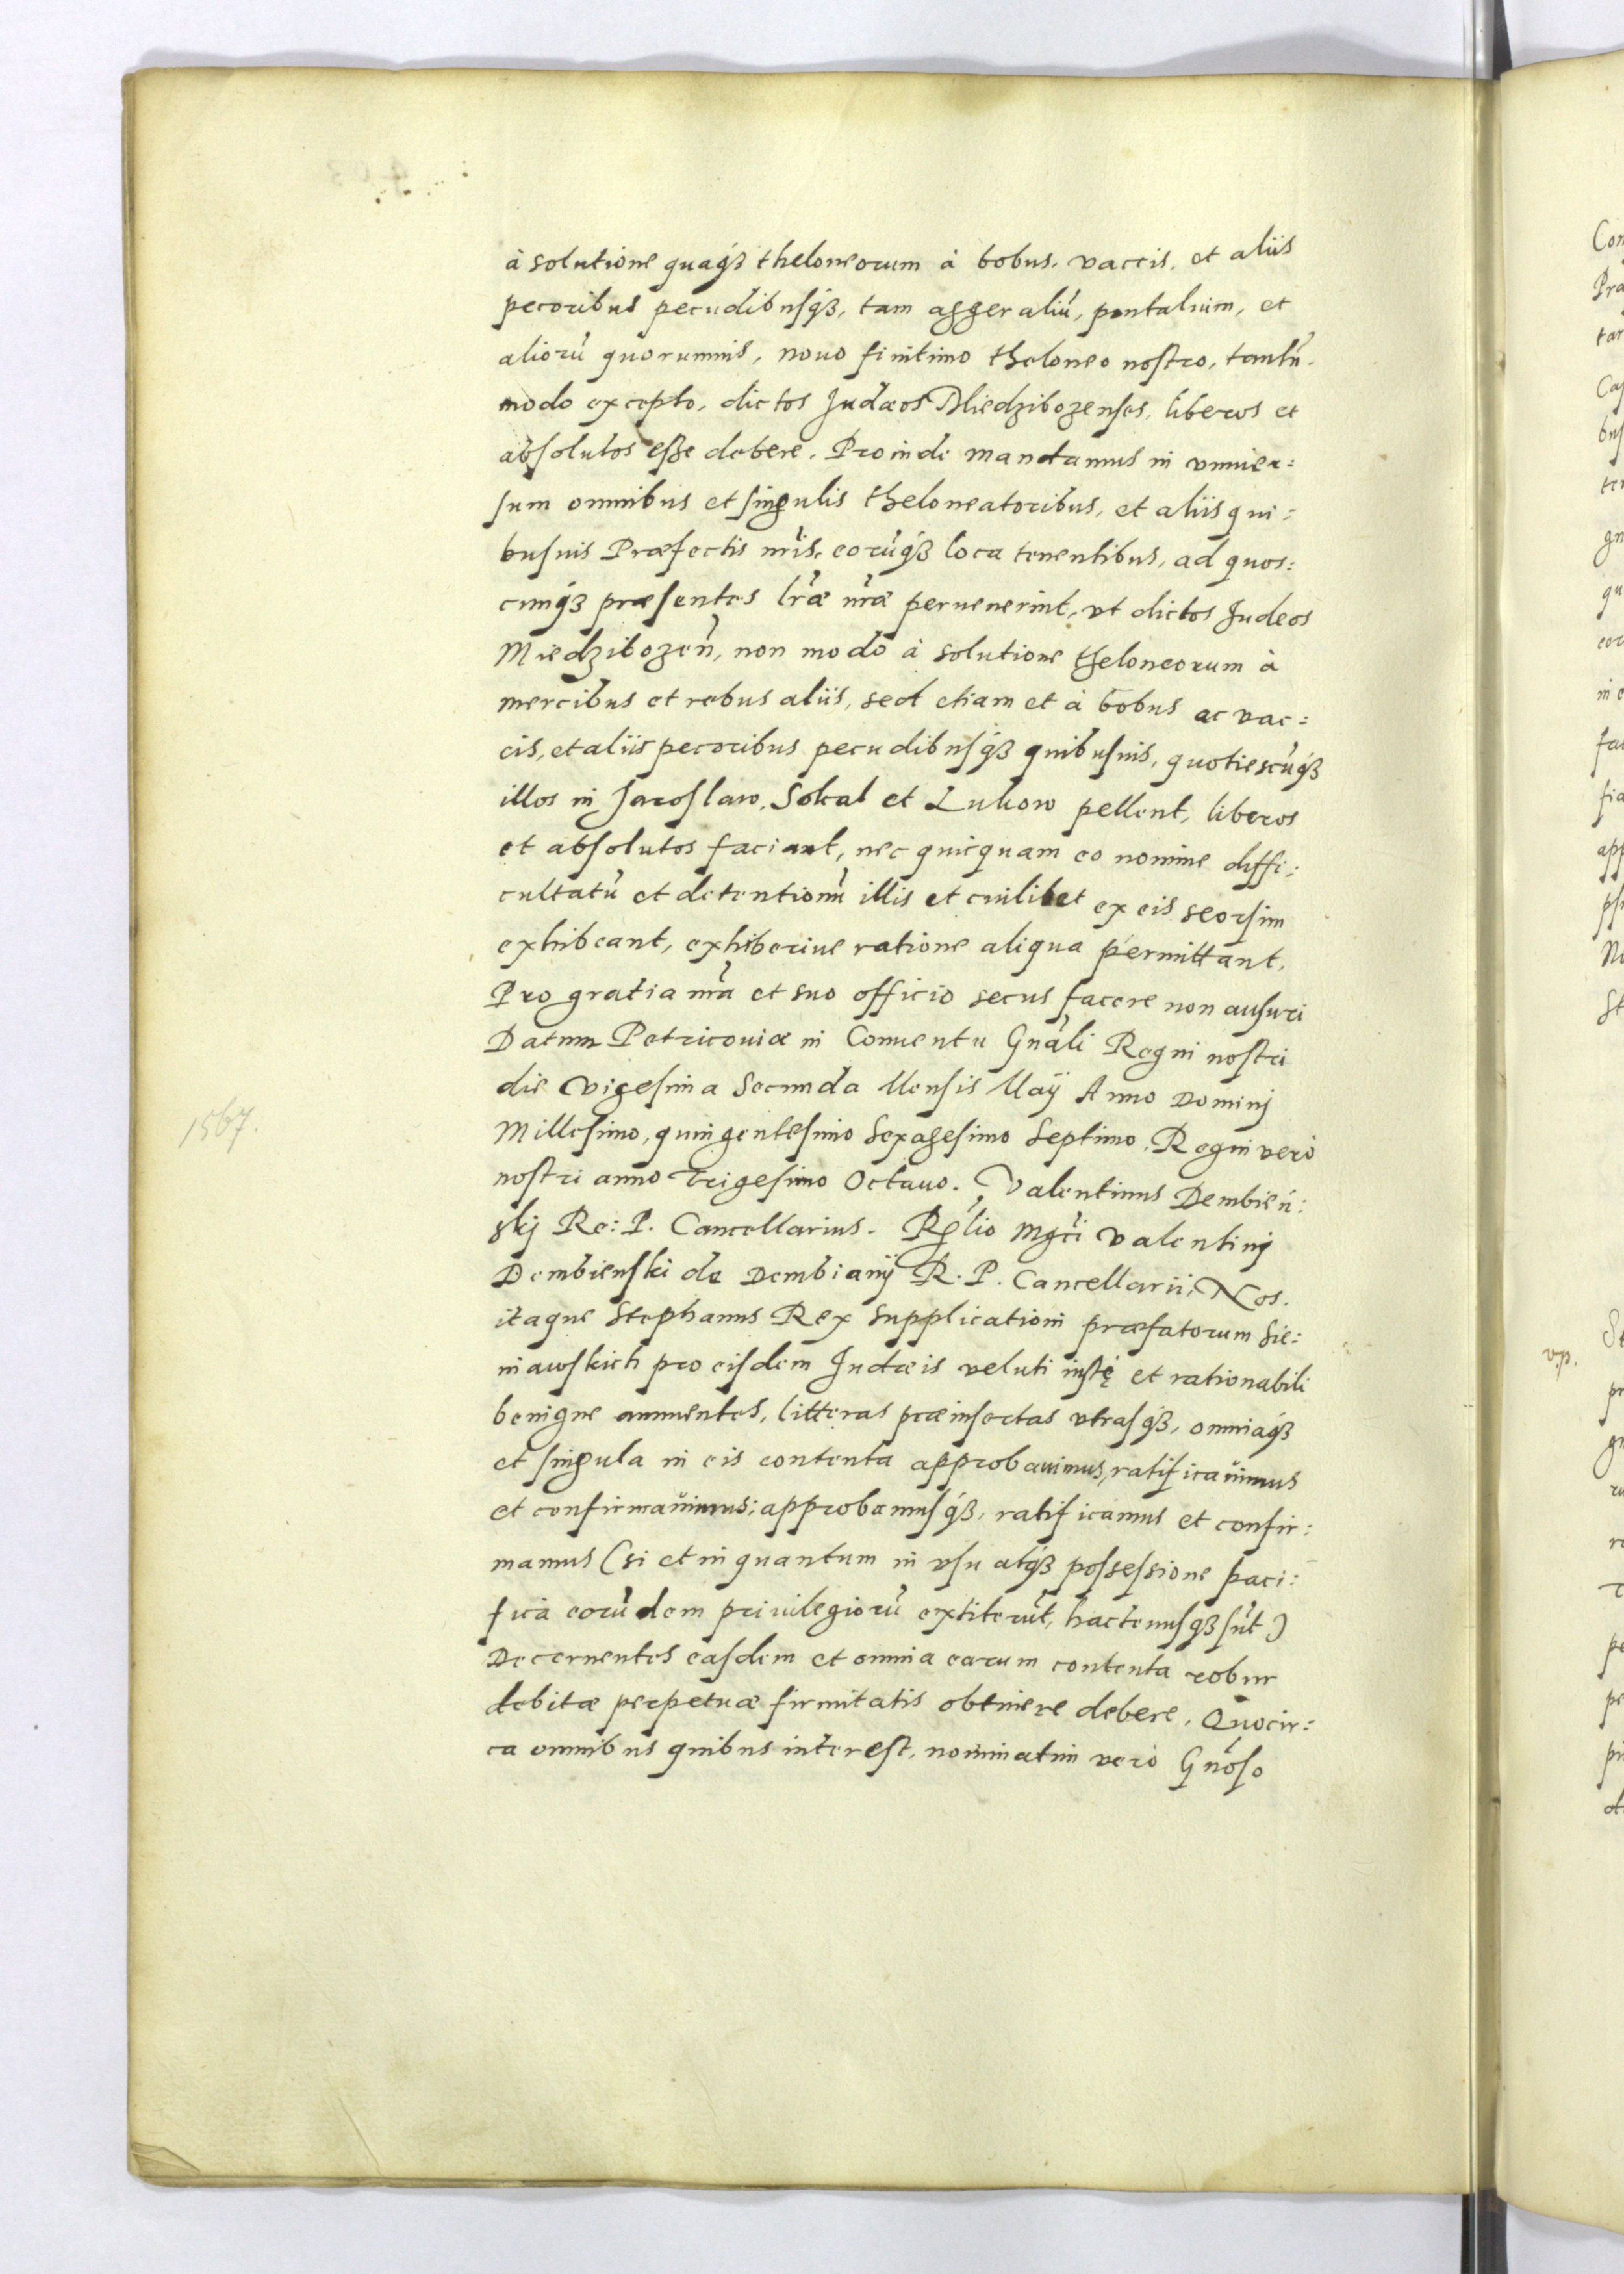 à solutione quaqȝ theloneorum à bobus, vaccis, et aliis
pecoribus pecudibusqȝ, tam aggeraliū, pontalium, et
aliorū quorumuis, nouo finitimo theloneo nostro, tantū.
modo excepto, dictos Judæos Miedzibozenses, liberos et
absolutos esse debere. Proinde mandamus in vniuer:
sum omnibus et singulis theloneatoribus, et aliis qui:
busuis Præfectis nr̃is, eorūqȝ loca tenentibus, ad quos:
cunqȝ præsentes lr̃æ nr̃æ peruenerint, vt dictos Judeos
Miedzibozen̄, non modo à solutione theloneorum à
mercibus et rebus aliis, sed etiam et à bobus ac vac:
cis, et aliis pecoribus pecudibusqȝ quibusuis, quotiescūqȝ
illos in Jaroslaw, Sokal et Lukow pellent, liberos
et absolutos faciant, nec quicquam eo nomine diffi:
cultatū et detentionū illis et cuilibet ex eis seorsim
exhibeant, exhiberiue ratione aliqua permittant,
Pro gratia nr̃a et suo officio secus facere non ausuri
Datum Petricouiæ in Conuentu Gn̄ali Regni nostri
die vigesima Secunda Mensis Maÿ Anno Dominj
1567.
Millesimo, quingentesimo Sexagesimo Septimo, Regni verò
nostri anno trigesimo Octauo. Valentinus Dembień:
skj Re: P. Cancellarius. Rēlio Mgc̄i Valentinj
Dembienski de Dembianÿ R. P. Cancellarii, Nos.
itaque Stephanus Rex Supplicationi præfatorum Sie:
niawskich pro eisdem Judæis veluti iustę et rationabili
benigne annuentes, litteras præinsertas vtrasqȝ, omniaqȝ
et singula in eis contenta approbauimus, ratificauimus
et confirmauimus; approbamusqȝ, ratificamus et confir:
mamus (si et in quantum in vsu atqȝ possessione paci:
fica eorūdem priuilegiorū extiterūt, hactenusqȝ sūt)
Decernentes easdem et omnia earum contenta robur
debitæ perpetuæ firmitatis obtinere debere. Quocir:
ca omnibus quibus interest, nominatim verò Gn̄oso